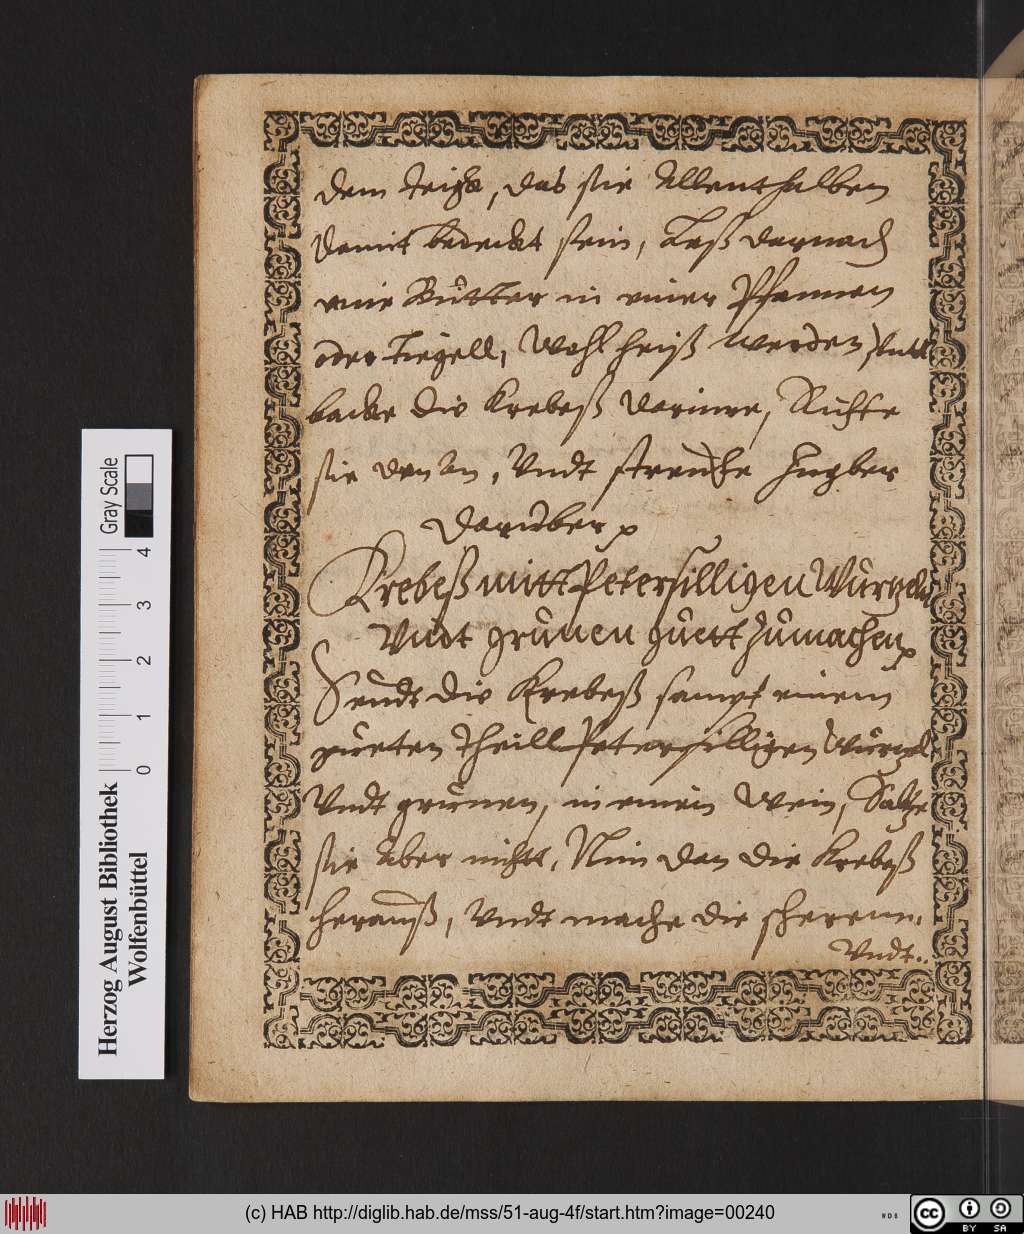 dem teigk, das sie Allenthalben
damit bedeckt sein, Laß darnach
eine Butter in einer Pfannen
oder Tiegell, Wohl heiß werden, Vndt
backe die Krebeß darinne, Richte
sie den An, Vndt streuche Jngber
darüber
Krebeß mitt Petersilligen Wurtzeln
Vndt grunen guett zumachen
Seudt die Krebeß sampt einem
gueten theill Petersilligen Wurtzel
Vndt grunen, in einen Wein, Saltze
sie Aber nicht, Nim dan die Krebeß
herauß, Vndt mache die scheren,
Vndt..
Herzog August Bibliothek
Wolfenbüttel
0 1 2 3 4
Gray Scale
(c) HAB http://diglib.hab.de/mss/51-aug-4f/start.htm?image=00240
WDB
cc BY SA